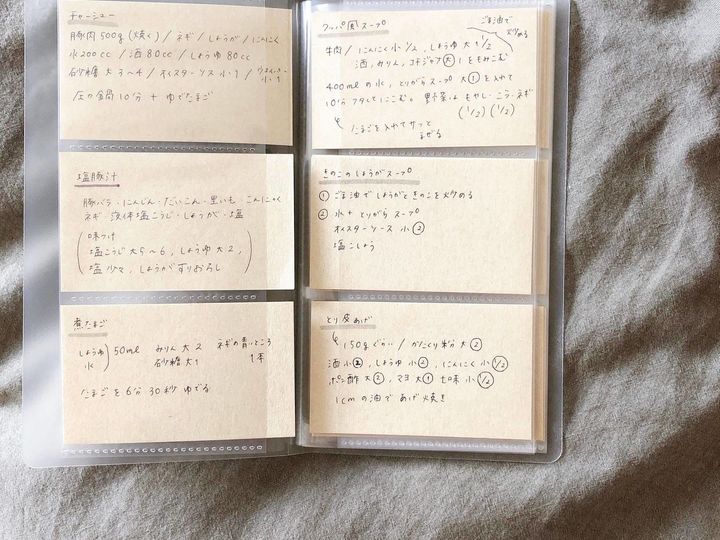 チャーシュー
豚肉500g(焼く) / ネギ / しょうが / にんにく
水200cc / 酒80cc / しょうゆ80cc
砂糖大3〜4 / オイスターソース小1 / ウェイパー小1
圧力鍋10分 + ゆでたまご
塩豚汁
豚バラ・にんじん・だいこん・里いも・こんにゃく
ネギ 液体塩こうじ・しょうが・塩
味つけ
塩こうじ大5〜6, しょうゆ大2,
塩少々, しょうがすりおろし
煮たまご
しょうゆ
水
50ml みりん大2 ネギの青いところ
砂糖大1 1本
たまごを6分30秒ゆでる
クッパ風スープ
ごま油で
炒める
牛肉 / にんにく小1/2, しょうゆ大1 1/2
酒, みりん, コチジャン大①をもみこむ
400mlの水, とりがらスープ大①を入れて
10分フタしてにこむ。野菜はもやし・ニラ・ネギ
(1/2) (1/2)
たまごを入れてサッと
まぜる
きのこのしょうがスープ
① ごま油でしょうがときのこを炒める
② 水+とりがらスープ
オイスターソース小②
塩こしょう
とり皮あげ
150gぐらい / かたくり粉大②
酒小②, しょうゆ小②, にんにく小1/2
ポン酢大②, マヨ大① 七味小1/2
1cmの油であげ焼き